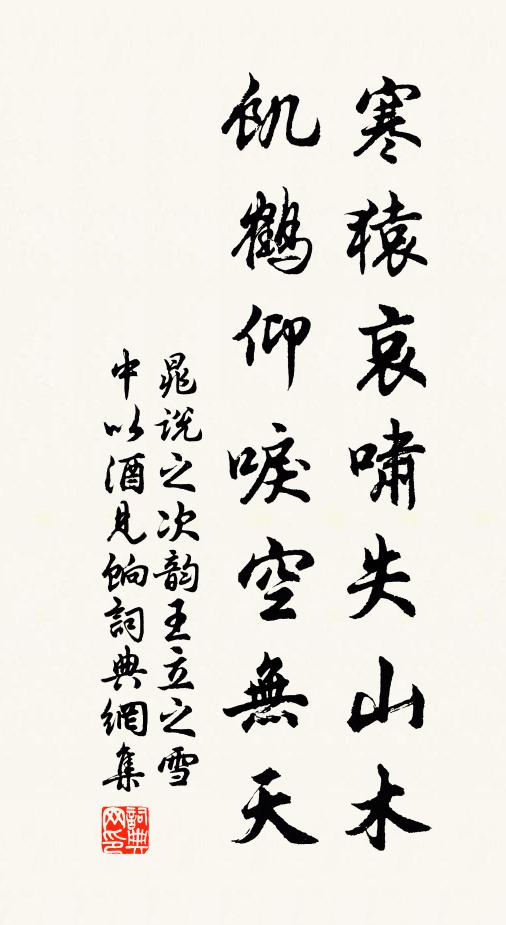 寒猿哀啸失山木
飢鶴仰唳空無天
晁説之次韵王立之雪
中以酒見餉詞典網集
詞典
网印